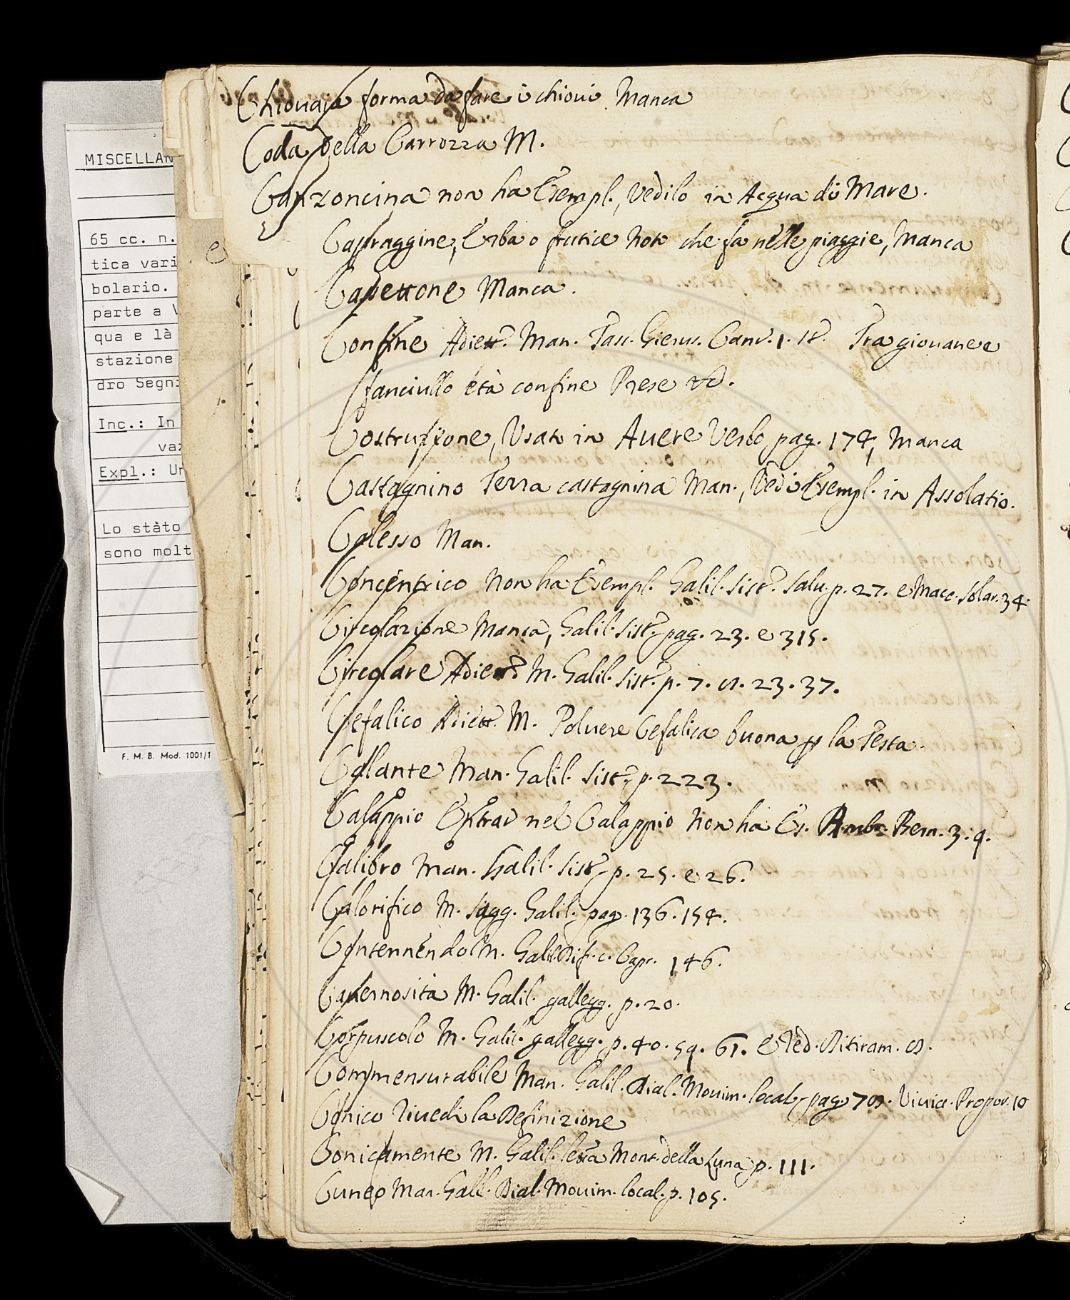 Chiovaia forma da fare i chiovi Manca
Coda della Carrozza M.
Canzoncina non ha Esempl., Vedilo in Acqua di Mare.
Capraggine, Erba o frutice noto che fa nelle piaggie, Manca
Capettone Manca.
Confine Adiett. Man. Tass. Gierus. Cant. 1. st. Tra giovane e
fanciullo età confine Prese &c.
Costruzione, Usato in Avere Verbo pag. 174, Manca
Castagnino Terra castagnina Man., Vedi Esempl. in Assolatio.
Calesso Man.
Concentrico Non ha Esempl. Galil. Sist. Salu. p. 27. e Macc. Solar. 34.
Circolazione Manca, Galil. Sist. pag. 23. e 315.
Circolare Adiett. M. Galil. Sist. p. 7. 23. 37.
Cefalico Adiett. M. Polvere Cefalica buona p la Testa.
Calante Man. Galil. Sist. p. 223.
Calappio nel Calappio Non ha Es. Bern. 3. 9.
Calibro Man. Galil. Sist. p. 25. e 26.
Calorifico M. Sagg. Galil. pag. 136. 154.
Contennendo M. Galil. Dif. c. Capr. 146.
Cavernosità M. Galil. gallegg. p. 20.
Corpuscolo M. Galil. gallegg. p. 40. 59. 61. e Ved.
Commensurabile Man. Galil. Dial. Movim. local. pag. Vivia. Propor. 10
Conico Rivedi la Definizione
Conicamente M. Galil. lettra Mont. della Luna p. 111.
Cuneo Man. Gall. Dial. Movim. local. p. 105.
MISCELLAN
65 cc. n.
tica vari
bolario.
parte a V
qua e là
stazione
dro Segni
Inc.: In
vaz
Expl.: Un
Lo stàto
sono molt
F. M. B. Mod. 1001/1